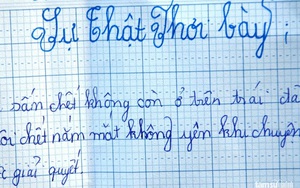 Sự Thật Phơi bày;
bấm chết không còn ở trên trái đấ
ôi chết nắm mắt không yên khi chuyện
giải quyết